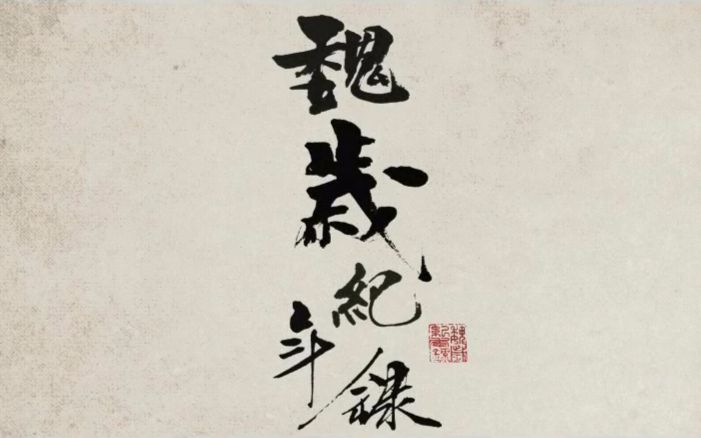 魏
歲
紀
年
錄